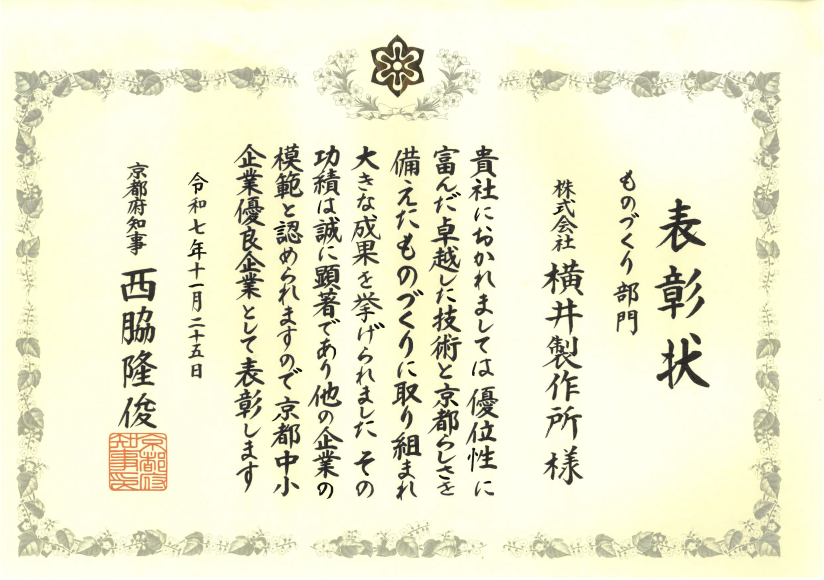 表彰状
ものづくり部門
株式会社 横井製作所 様
貴社におかれましては優位性に
富んだ卓越した技術と京都らしさを
備えたものづくりに取り組まれ
大きな成果を挙げられました その
功績は誠に顕著であり他の企業の
模範と認められますので京都中小
企業優良企業として表彰します
令和七年十一月二十五日
京都府知事 西脇隆俊
京都府知事之印